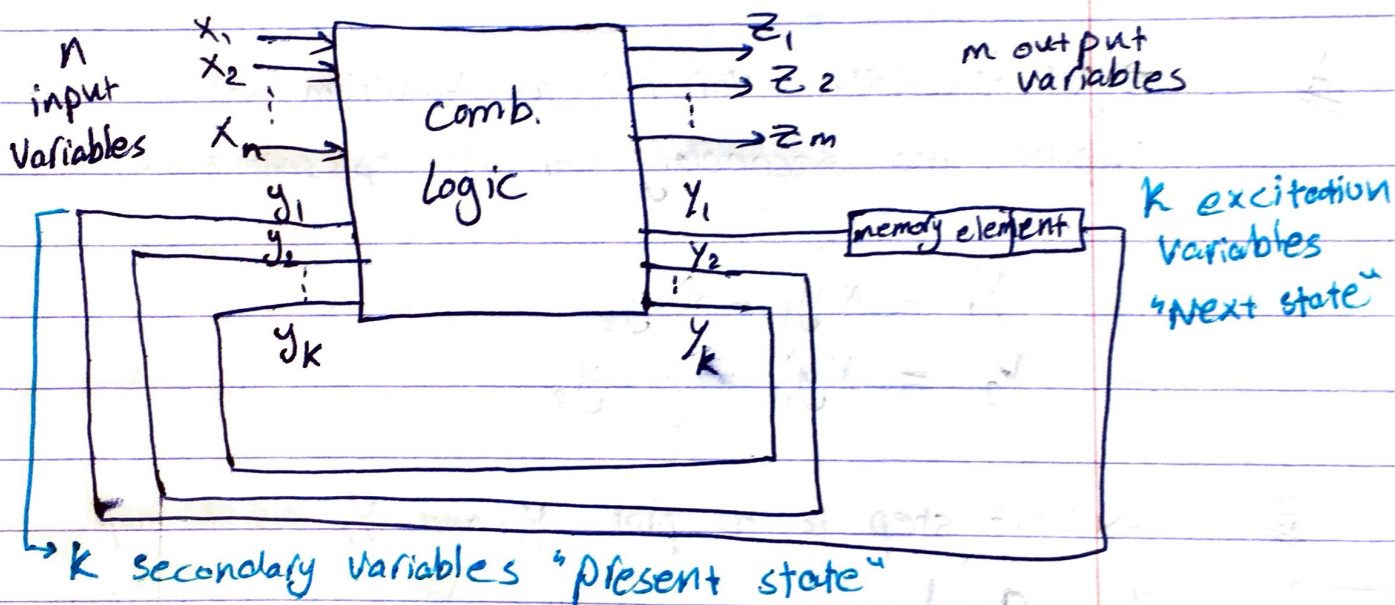 n
input
Variables
X₁
X₂
Xₙ
Comb.
Logic
Z₁
Z₂
Zₘ
m output
variables
y₁
y₂
yₖ
Y₁
Y₂
Yₖ
memory element
K excitation
variables
"Next state"
K secondary variables "Present state"